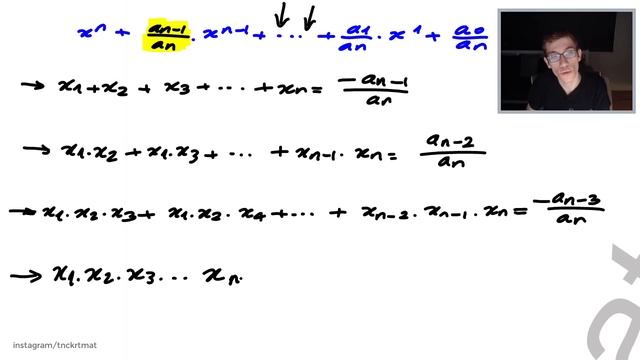 xⁿ + aₙ₋₁/aₙ · xⁿ⁻¹ + ... + a₁/aₙ · x¹ + a₀/aₙ
→ x₁+x₂ + x₃ + ... + xₙ = -aₙ₋₁/aₙ
→ x₁·x₂ + x₁·x₃ + ... + xₙ₋₁·xₙ = aₙ₋₂/aₙ
→ x₁·x₂·x₃ + x₁·x₂·x₄ + ... + xₙ₋₂·xₙ₋₁·xₙ = -aₙ₋₃/aₙ
→ x₁·x₂·x₃·... xₙ
instagram/tnckrtmat